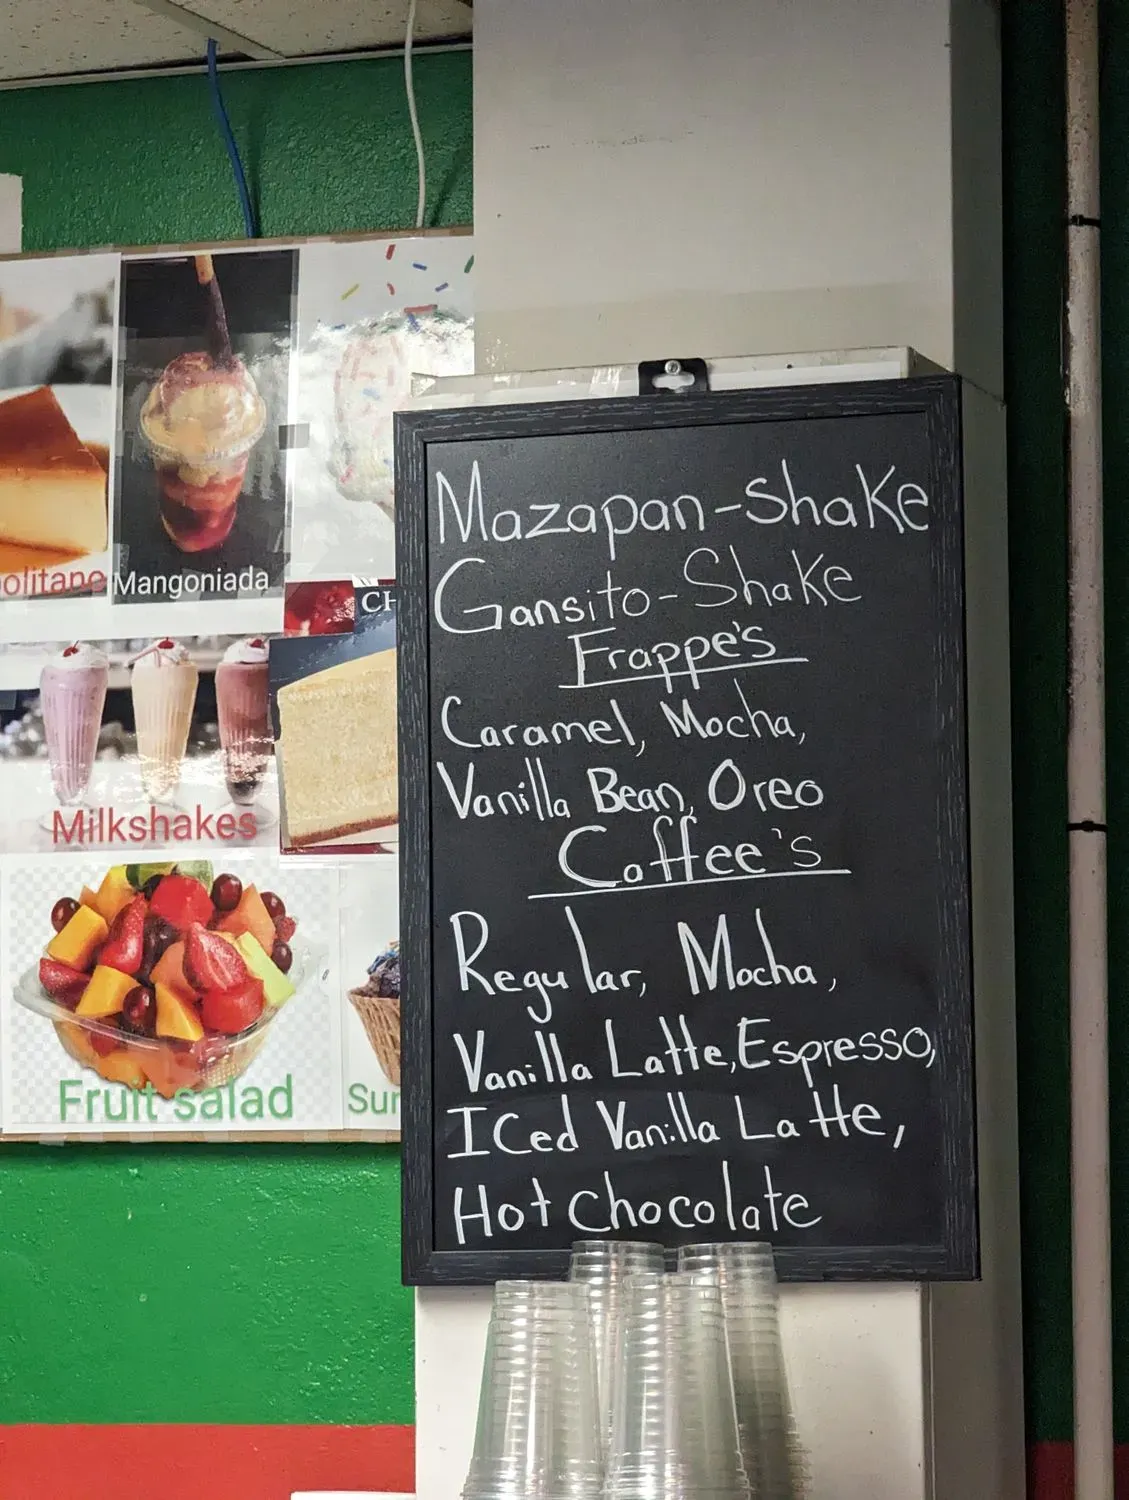 Mangoniada
CH
Milkshakes
Fruit salad
Mazapan-Shake
Gansito-Shake
Frappe's
Caramel, Mocha,
Vanilla Bean, Oreo
Coffee's
Regular, Mocha,
Vanilla Latte, Espresso,
Iced Vanilla Latte,
Hot chocolate